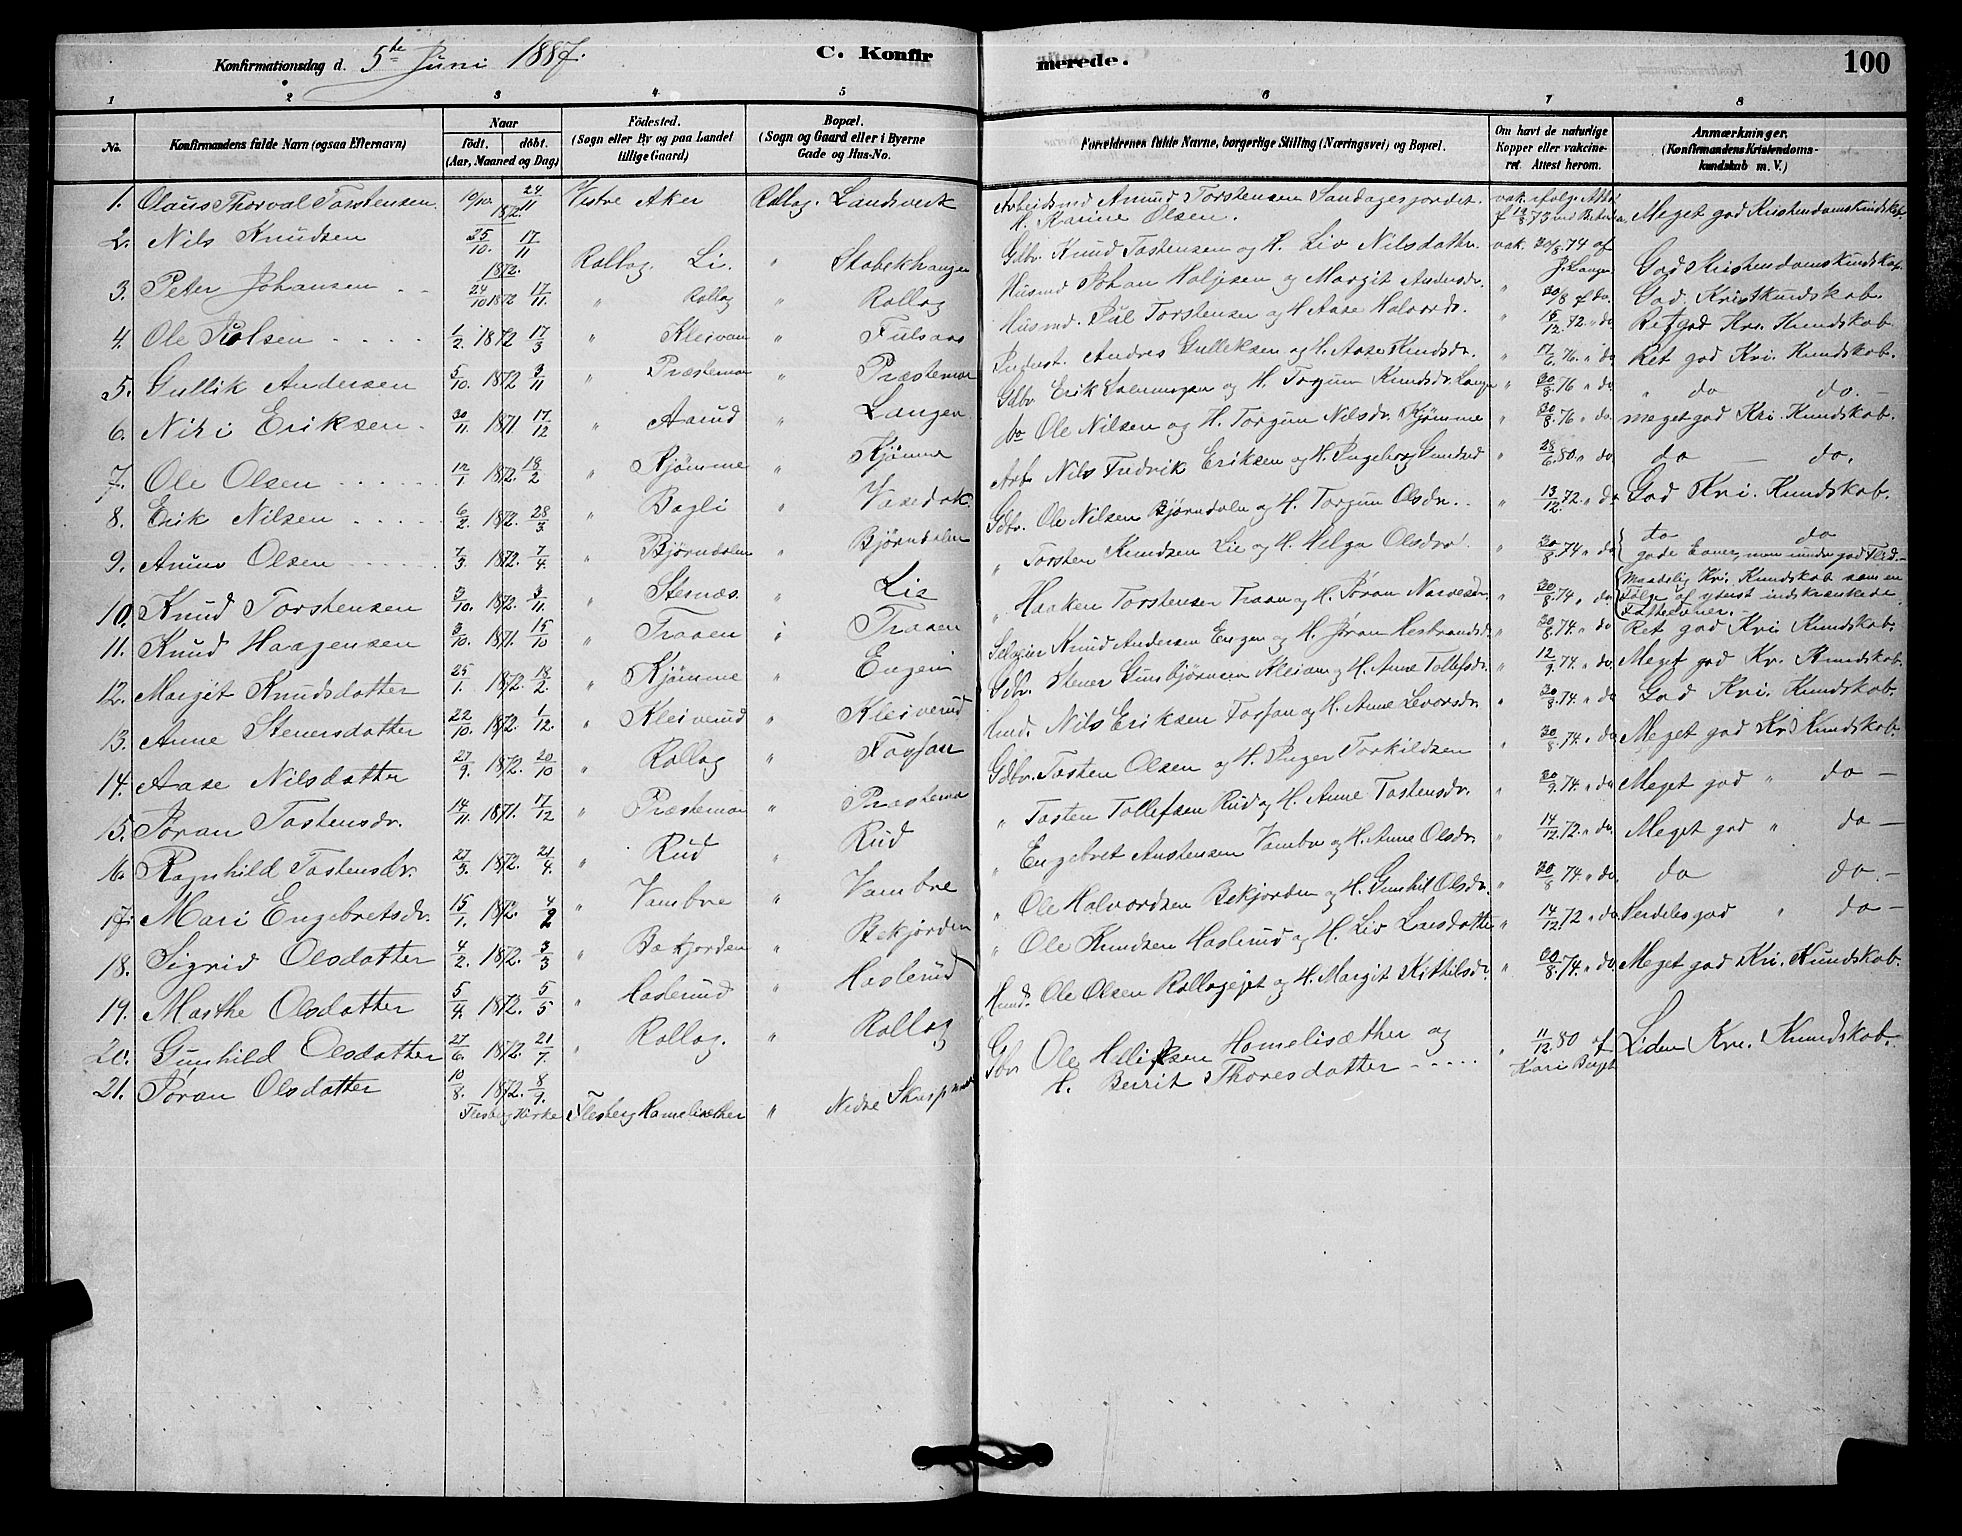 Konfirmationsdag d. 5te Juni 1887.
C. Konfirmerede.
100
1 2 3 4 5 6 7 8
No.
Konfirmandens fulde Navn (ogsaa Efternavn)
Naar
født. døbt.
(Aar, Maaned og Dag)
Födested.
(Sogn eller By og paa Landet
tillige Gaard)
Bopæl.
(Sogn og Gaard eller i Byerne
Gade og Hus-No.
Forældrenes fulde Navne, borgerlige Stilling (Næringsvei) og Bopæl.
Om havt de naturlige
Kopper eller vakcine-
ret. Attest herom.
Anmærkninger.
(Konfirmandens Kristendoms-
kundskab m. V.)
1. Olaus Thorval Torstensen. 19/10. 1872. 24/11 Vestre Aker Rollag. Landsverk Arbeidsmd Amund Torstensen Sandagesjordet. vak. ifølge Att.
H. Karine Olsen. Meget god Kristendomskundskab
2. Nils Knudsen 25/10. 1872. 17/11 Rollag. Li. " Stobekhaugen Gdbr. Knud Tostensen og H. Liv Nilsdattr. vak. 30/8 74 af J. Langen God Kristendomskundskab.
3. Peter Johansen 24/10 1872 17/11. " Rollag " Rollag Husmd Johan Holjesen og Margit Andersdr. " 30/8 " do. God Krist Kundskab.
4. Ole Julsen 1/2. 1872 17/3 " Kleivan " Fulsaas Husmd. Jul Torstensen og H. Aase Halvordr. " 15/12. 72. " do Ret god Kri. Kundskab.
5. Gullik Andersen 5/10. 1872 3/11 " Præstemoen " Præstemoen Andres Gulleksen og H. Aase Knudsdr. " 17/6. 76. " do Ret god Kri. Kundskab.
6. Nils Eriksen 30/11 1871. 17/12 " Aarud " Langen Gdbr. Erik og H. Torgun Knudsdr. Langen " 30/8. 76 " do " do do.
7. Ole Olsen 12/1 1872. 18/2 " Kjømme " Kjømme do Ole Nilsen og H. Torgun Nilsdr. Kjømme " 30/8. 76 " do meget god Kri. Kundskab.
8. Erik Nilsen 6/2. 1872. 28/3 " Bagli " Arb. Nils Fredrik Eriksen og H. Ingeborg " 28/6. 80 " do do do.
9. Olsen 7/3 1872. 7/4. " Bjørndalen " Bjørndalen Gdbr. Ole Nilsen Bjørndalen og H. Torgun Olsdr. " 13/12. 72. " do God Kri. Kundskab.
10. Knud Torstensen 3/10. 1872. 3/11. " Stenæs. " Lie " Torsten Knudsen Lie og H. Helga Olsdr. " 30/8. 74 " do do do
gode Evner, men mindre god Flid.
11. Knud Haagensen 3/10. 1871. 15/10 " Traaen " Traaen " Haaken Torstensen Traaen og H. Jøran " 30/8. 74 " do. Maadelig Kri. Kundskab som en
Følge af yderst indskrænkede
Fatteevner.
12. Margit Knudsdatter 25/1. 1872. 18/2. " Kjømme " Engen Knud Andersen Engen og H. Jøran " 30/8. 74. " do Ret god Kri. Kundskab.
13. Anne Stenersdatter 22/10. 1872. 1/12. " Kleiverud " Kleiverud Gdbr. Stener og H. Anne Tollefsdr. " 12/9. 74. " do Meget god Kr. Kundskab.
14. Aase Nilsdatter 27/9. 1872. 20/10 " Rollag " Nils Eriksen og H. Anne " 30/8. 74. " do God Kri. Kundskab.
15. Jøran Tostensdr. 14/11. 1871. 17/12 " Præstemoen " Præstemoen Gdbr. Tosten Olsen og H. Inger Torkildsen " 30/8. 74. " do Meget god Kr. Kundskab.
16. Ragnhild Tostensdr. 27/3. 1872. 21/4. " Rud " Rud " Tosten Tollefsen Rud og H. Anne Tostensdr. " 30/9. 74. " do Meget god " do
17. Mari Engebretsdr. 15/1. 1872. 4/2 " Vambre " Vambre " Engebret Anstensen Vambre og H. Anne Olsdr. " 14/12. 72. " do Meget god " do
18. Sigrid Olsdatter 4/2. 1872. 3/3 " Bekjorden " Bekjorden " Ole Halvordsen Bekjorden og H. Gunhil Olsdr. " 30/8 74. " do. do do.
19. Marthe Olsdatter 5/4. 1872. 5/5 " Haslerud " Haslerud " Ole Knudsen Haslerud og H. Liv Larsdatter " 14/12. 72 " do Serdeles god " do
20. Gunhild Olsdatter 27/6. 1872. 21/7. " Rollag. " Rollag Husmd. Ole Olsen Rollagejet og H. Margit Kittilsdr. " 30/8. 74. " do. Meget god Kri. Kundskab.
21. Jøran Olsdatter 10/8. 1872. 8/9. Flesberg Kirke Flesberg Hamelisæther " Nedre Gbr Ole Hamelisæther og " 11/12. 80 af Liden Kri. Kundskab.
H. Berrit Thoresdatter Kari Berget